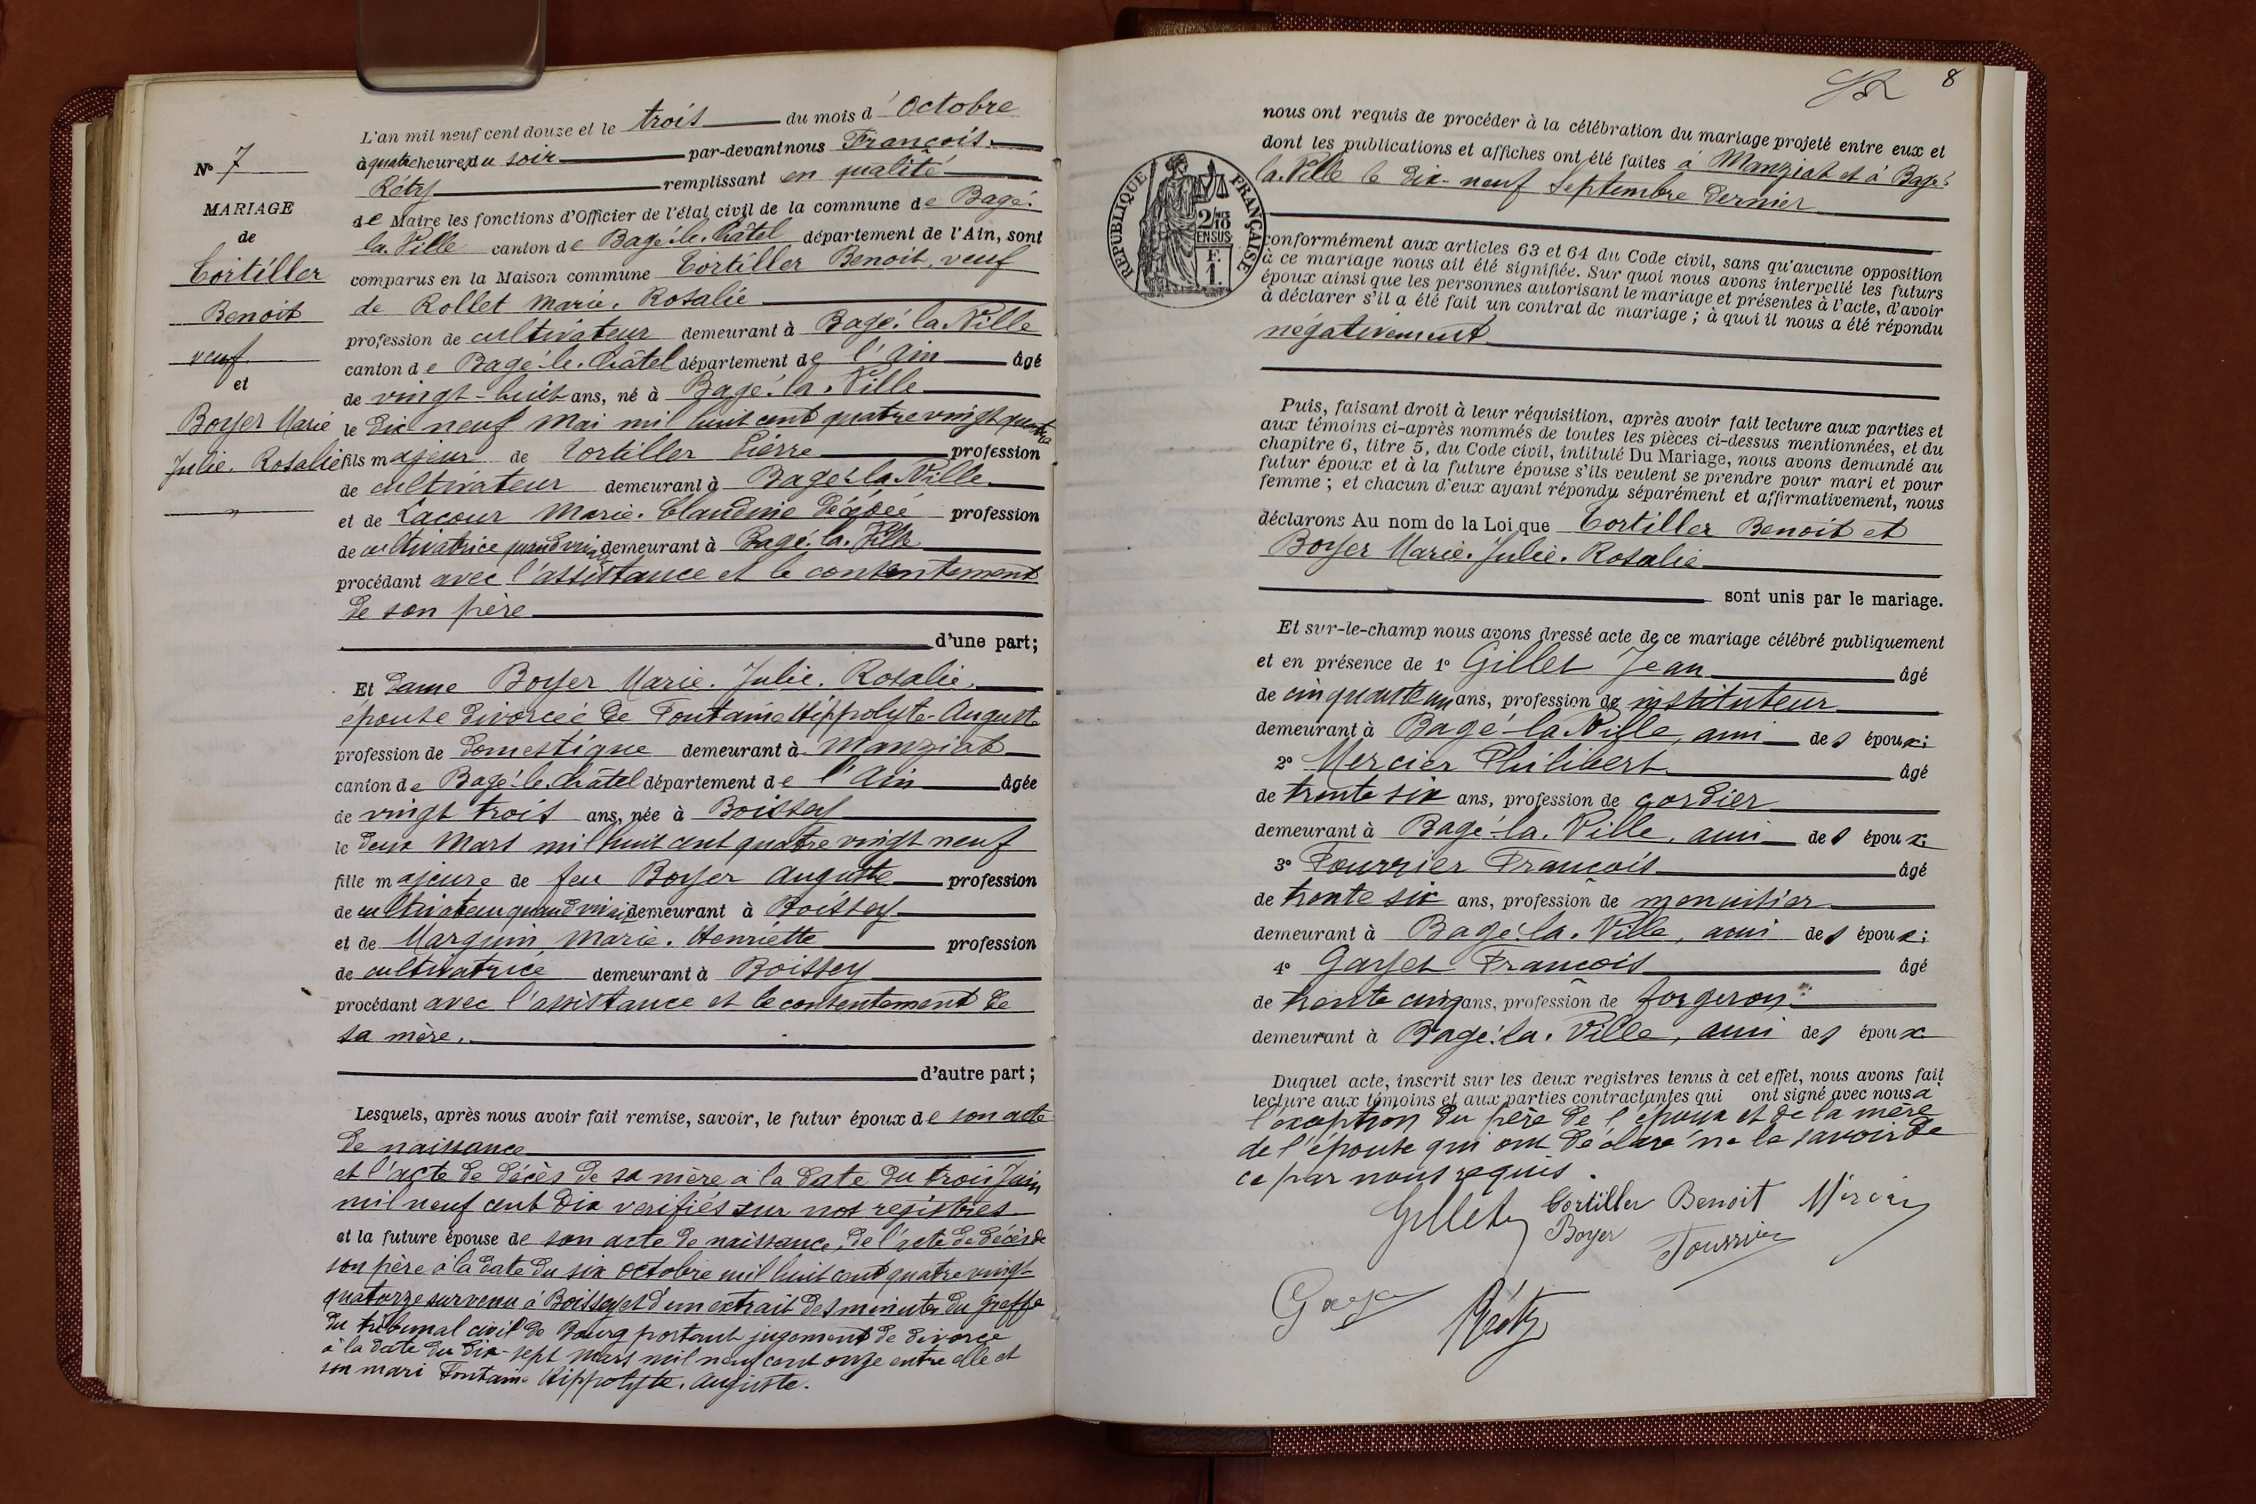 N° 7
MARIAGE
de
Tortiller
Benoit
veuf
et
Boyer Marie
Julie. Rosalie
L'an mil neuf cent douze et le trois du mois d'Octobre
à quatre heures du soir par-devant nous François
Réty remplissant en qualité
de Maire les fonctions d'Officier de l'état civil de la commune de Bagé-
la-Ville canton de Bagé-le-Châtel département de l'Ain, sont
comparus en la Maison commune Tortiller Benoit, veuf
de Rollet Marie. Rosalie
profession de cultivateur demeurant à Bagé-la-Ville
canton de Bagé-le-Châtel département de l'Ain âgé
de vingt-huit ans, né à Bagé-la-Ville
le dix neuf Mai mil huit cent quatre vingt quatre
fils majeur de Tortiller Pierre profession
de cultivateur demeurant à Bagé-la-Ville
et de Lacour Marie. Claudine décédée profession
de cultivatrice quand vivait demeurant à Bagé-la-Ville
procédant avec l'assistance et le consentement
de son père
d'une part;
Et Dame Boyer Marie. Julie. Rosalie,
épouse divorcée de Fontaine Hippolyte-Auguste
profession de domestique demeurant à Manziat
canton de Bagé-le-Châtel département de l'Ain âgée
de vingt trois ans, née à Boissey
le deux Mars mil huit cent quatre vingt neuf
fille majeure de feu Boyer Auguste profession
de cultivateur quand vivait demeurant à Boissey
et de Marguin Marie. Henriette profession
de cultivatrice demeurant à Boissey
procédant avec l'assistance et le consentement de
sa mère.
d'autre part;
Lesquels, après nous avoir fait remise, savoir, le futur époux de son acte
de naissance
et l'acte de décès de sa mère à la date du trois Juin
mil neuf cent dix verifiés sur nos registres
et la future épouse de son acte de naissance, de l'acte de décès de
son père à la date du six octobre mil huit cent quatre vingt-
quatorze survenu à Boissey et d'un extrait des minutes du Greffe
du tribunal civil de Bourg portant jugement de divorce
à la date du dix-sept mars mil neuf cent onze entre elle et
son mari Fontaine Hippolyte. Auguste.
8
RÉPUBLIQUE FRANÇAISE
2/10
EN SUS
F.
1.
nous ont requis de procéder à la célébration du mariage projeté entre eux et
dont les publications et affiches ont été faites à Manziat et à Bagé-
la-Ville le dix-neuf Septembre dernier
conformément aux articles 63 et 64 du Code civil, sans qu'aucune opposition
à ce mariage nous ait été signifiée. Sur quoi nous avons interpellé les futurs
époux ainsi que les personnes autorisant le mariage et présentes à l'acte, d'avoir
à déclarer s'il a été fait un contrat de mariage; à quoi il nous a été répondu
négativement
Puis, faisant droit à leur réquisition, après avoir fait lecture aux parties et
aux témoins ci-après nommés de toutes les pièces ci-dessus mentionnées, et du
chapitre 6, titre 5, du Code civil, intitulé Du Mariage, nous avons demandé au
futur époux et à la future épouse s'ils veulent se prendre pour mari et pour
femme; et chacun d'eux ayant répondu séparément et affirmativement, nous
déclarons Au nom de la Loi que Tortiller Benoit et
Boyer Marie. Julie. Rosalie
sont unis par le mariage.
Et sur-le-champ nous avons dressé acte de ce mariage célébré publiquement
et en présence de 1° Gillet Jean âgé
de cinquante un ans, profession de instituteur
demeurant à Bagé-la-Ville, ami des époux;
2° Mercier Philibert âgé
de trente six ans, profession de cordier
demeurant à Bagé-la-Ville, ami des époux;
3° Fourrier François âgé
de trente six ans, profession de menuisier
demeurant à Bagé-la-Ville, ami des époux;
4° Gayet François âgé
de trente cinq ans, profession de forgeron,
demeurant à Bagé-la-Ville, ami des époux
Duquel acte, inscrit sur les deux registres tenus à cet effet, nous avons fait
lecture aux témoins et aux parties contractantes qui ont signé avec nous à
l'exception du père de l'époux et de la mère
de l'épouse qui ont déclaré ne le savoir de
ce par nous requis.
Gillet Tortiller Benoit Mercier
Boyer Fourrier
Gayet Réty